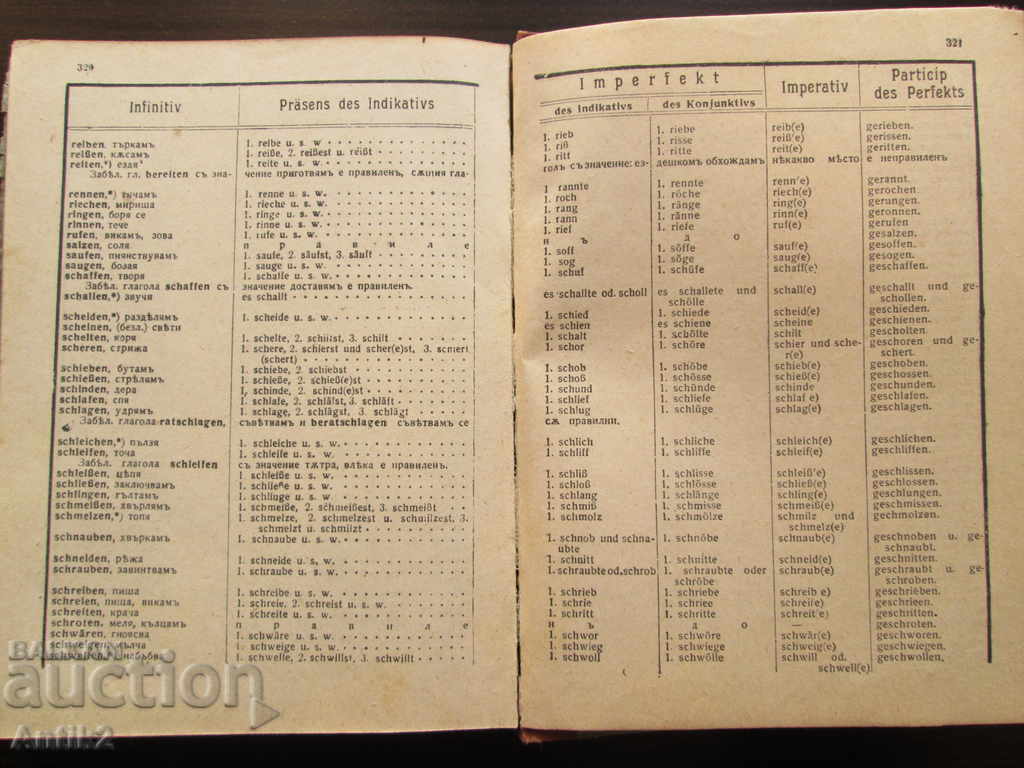 320
Infinitiv Präsens des Indikativs
reiben, търкамъ 1. reibe u. s. w.
reißen, кѫсамъ 1. reiße, 2. reißest u. reißt
reiten,*) яздя 1. reite u. s. w.
Забѣл. гл. bereiten съ значение приготвямъ е правиленъ, сѫщия гла-
rennen,*) тичамъ 1. renne u. s. w.
riechen, мириша 1. rieche u. s. w.
ringen, боря се 1. ringe u. s. w.
rinnen, тече 1. rinne u. s. w.
rufen, викамъ, зова 1. rufe u. s. w.
salzen, соля п р а в и л е
saufen, пиянствувамъ 1. saufe, 2. säufst, 3. säuft
saugen, бозая 1. sauge u. s. w.
schaffen, творя 1. schaffe u. s. w.
Забѣл. глагола schaffen съ значение доставямъ е правиленъ.
schallen,*) звучи es schallt
scheiden,*) раздѣлямъ 1. scheide u. s. w.
scheinen, (безл.) свѣти
schelten, коря 1. schelte, 2. schiltst, 3. schilt
scheren, стрижа 1. schere, 2. schierst und scher(e)st, 3. schiert
(schert)
schieben, бутамъ 1. schiebe, 2. schiebst
schießen, стрѣлямъ 1. schieße, 2. schieß(e)st
schinden, дера 1. schinde, 2. schind(e)st
schlafen, спя 1. schlafe, 2. schläfst, 3. schläft
schlagen, удрямъ 1. schlage, 2. schlägst, 3. schlägt
Забѣл. глагола ratschlagen, съветвамъ и beratschlagen съветвамъ се
schleichen,*) пълзя 1. schleiche u. s. w.
schleifen, точа 1. schleife u. s. w.
Забѣл. глагола schleifen съ значение тѫтря, влѣка е правиленъ.
schleißen, цѣпя 1. schleiße u. s. w.
schließen, заключвамъ 1. schließe u. s. w.
schlingen, гълтамъ 1. schlinge u. s. w.
schmeißen, хвърлямъ 1. schmeiße, 2. schmeißest, 3. schmeißt
schmelzen,*) топя 1. schmelze, 2. schmelzest u. schmilzest, 3.
schmelzt u. schmilzt
schnauben, хъркамъ 1. schnaube u. s. w.
schneiden, рѣжа 1. schneide u. s. w.
schrauben, завинтвамъ 1. schraube u. s. w.
schreiben, пиша 1. schreibe u. s. w.
schreien, пища, викамъ 1. schreie, 2. schreist u. s. w.
schreiten, крача 1. schreite u. s. w.
schroten, меля, кълцамъ п р а в и л е
schwären, гноясва 1. schwäre u. s. w.
schweigen, мълча 1. schweige u. s. w.
schwellen, набъбва 1. schwelle, 2. schwillst, 3. schwillt
321
Imperfekt Imperativ Particip des Perfekts
des Indikativs des Konjunktivs
1. rieb 1. riebe reib(e) gerieben.
1. riß 1. risse reiß'e) gerissen.
1. ritt 1. ritte reit(e) geritten.
голъ съ значение: ездешкомъ обхождамъ нѣкакво мѣсто е неправиленъ
1 rannte 1. rennte renn'e) gerannt.
1. roch 1. röche riech(e) gerochen.
1. rang 1. ränge ring(e) gerungen.
1. rann 1. ränne rinn(e) geronnen.
1. rief 1. riefe ruf(e) gerufen
н ъ д о gesalzen.
1. soff 1. söffe sauf(e) gesoffen.
1. sog 1. söge saug(e) gesogen.
1. schuf 1. schüfe schaff(e) geschaffen.
es schallte od. scholl es schallete und schölle schall(e) geschallt und geschollen.
1. schied 1. schiede scheid(e) geschieden.
es schien es schiene scheine geschienen.
1. schalt 1. schölte schilt gescholten.
1. schor 1. schöre schier und scher(e) geschoren und geschert.
1. schob 1. schöbe schieb(e) geschoben.
1. schoß 1. schösse schieß(e) geschossen.
1. schund 1. schünde schinde geschunden.
1. schlief 1. schliefe schlaf e) geschlafen.
1. schlug 1. schlüge schlag(e) geschlagen.
сѫ правилни.
1. schlich 1. schliche schleich(e) geschlichen.
1. schliff 1. schliffe schleif(e) geschliffen.
1. schliß 1. schlisse schleiß'e) geschlissen.
1. schloß 1. schlösse schließ(e) geschlossen.
1. schlang 1. schlänge schling(e) geschlungen.
1. schmiß 1. schmisse schmeiß(e) geschmissen.
1. schmolz 1. schmölze schmilz und schmelz(e) geschmolzen.
1. schnob und schnaubte 1. schnöbe schnaub(e) geschnoben u. geschnaubt.
1. schnitt 1. schnitte schneid(e) geschnitten.
1. schraubte od. schrob 1. schraubte oder schröbe schraub(e) geschraubt u. geschroben.
1. schrieb 1. schriebe schreib(e) geschrieben.
1. schrie 1. schriee schrei'e) geschrieen.
1. schritt 1. schritte schreit'e) geschritten.
н ъ д о — geschroten.
1. schwor 1. schwöre schwär(e) geschworen.
1. schwieg 1. schwiege schweig(e) geschwiegen.
1. schwoll 1. schwölle schwill od. schwell(e) geschwollen,
BALKAN
auction
Antik2